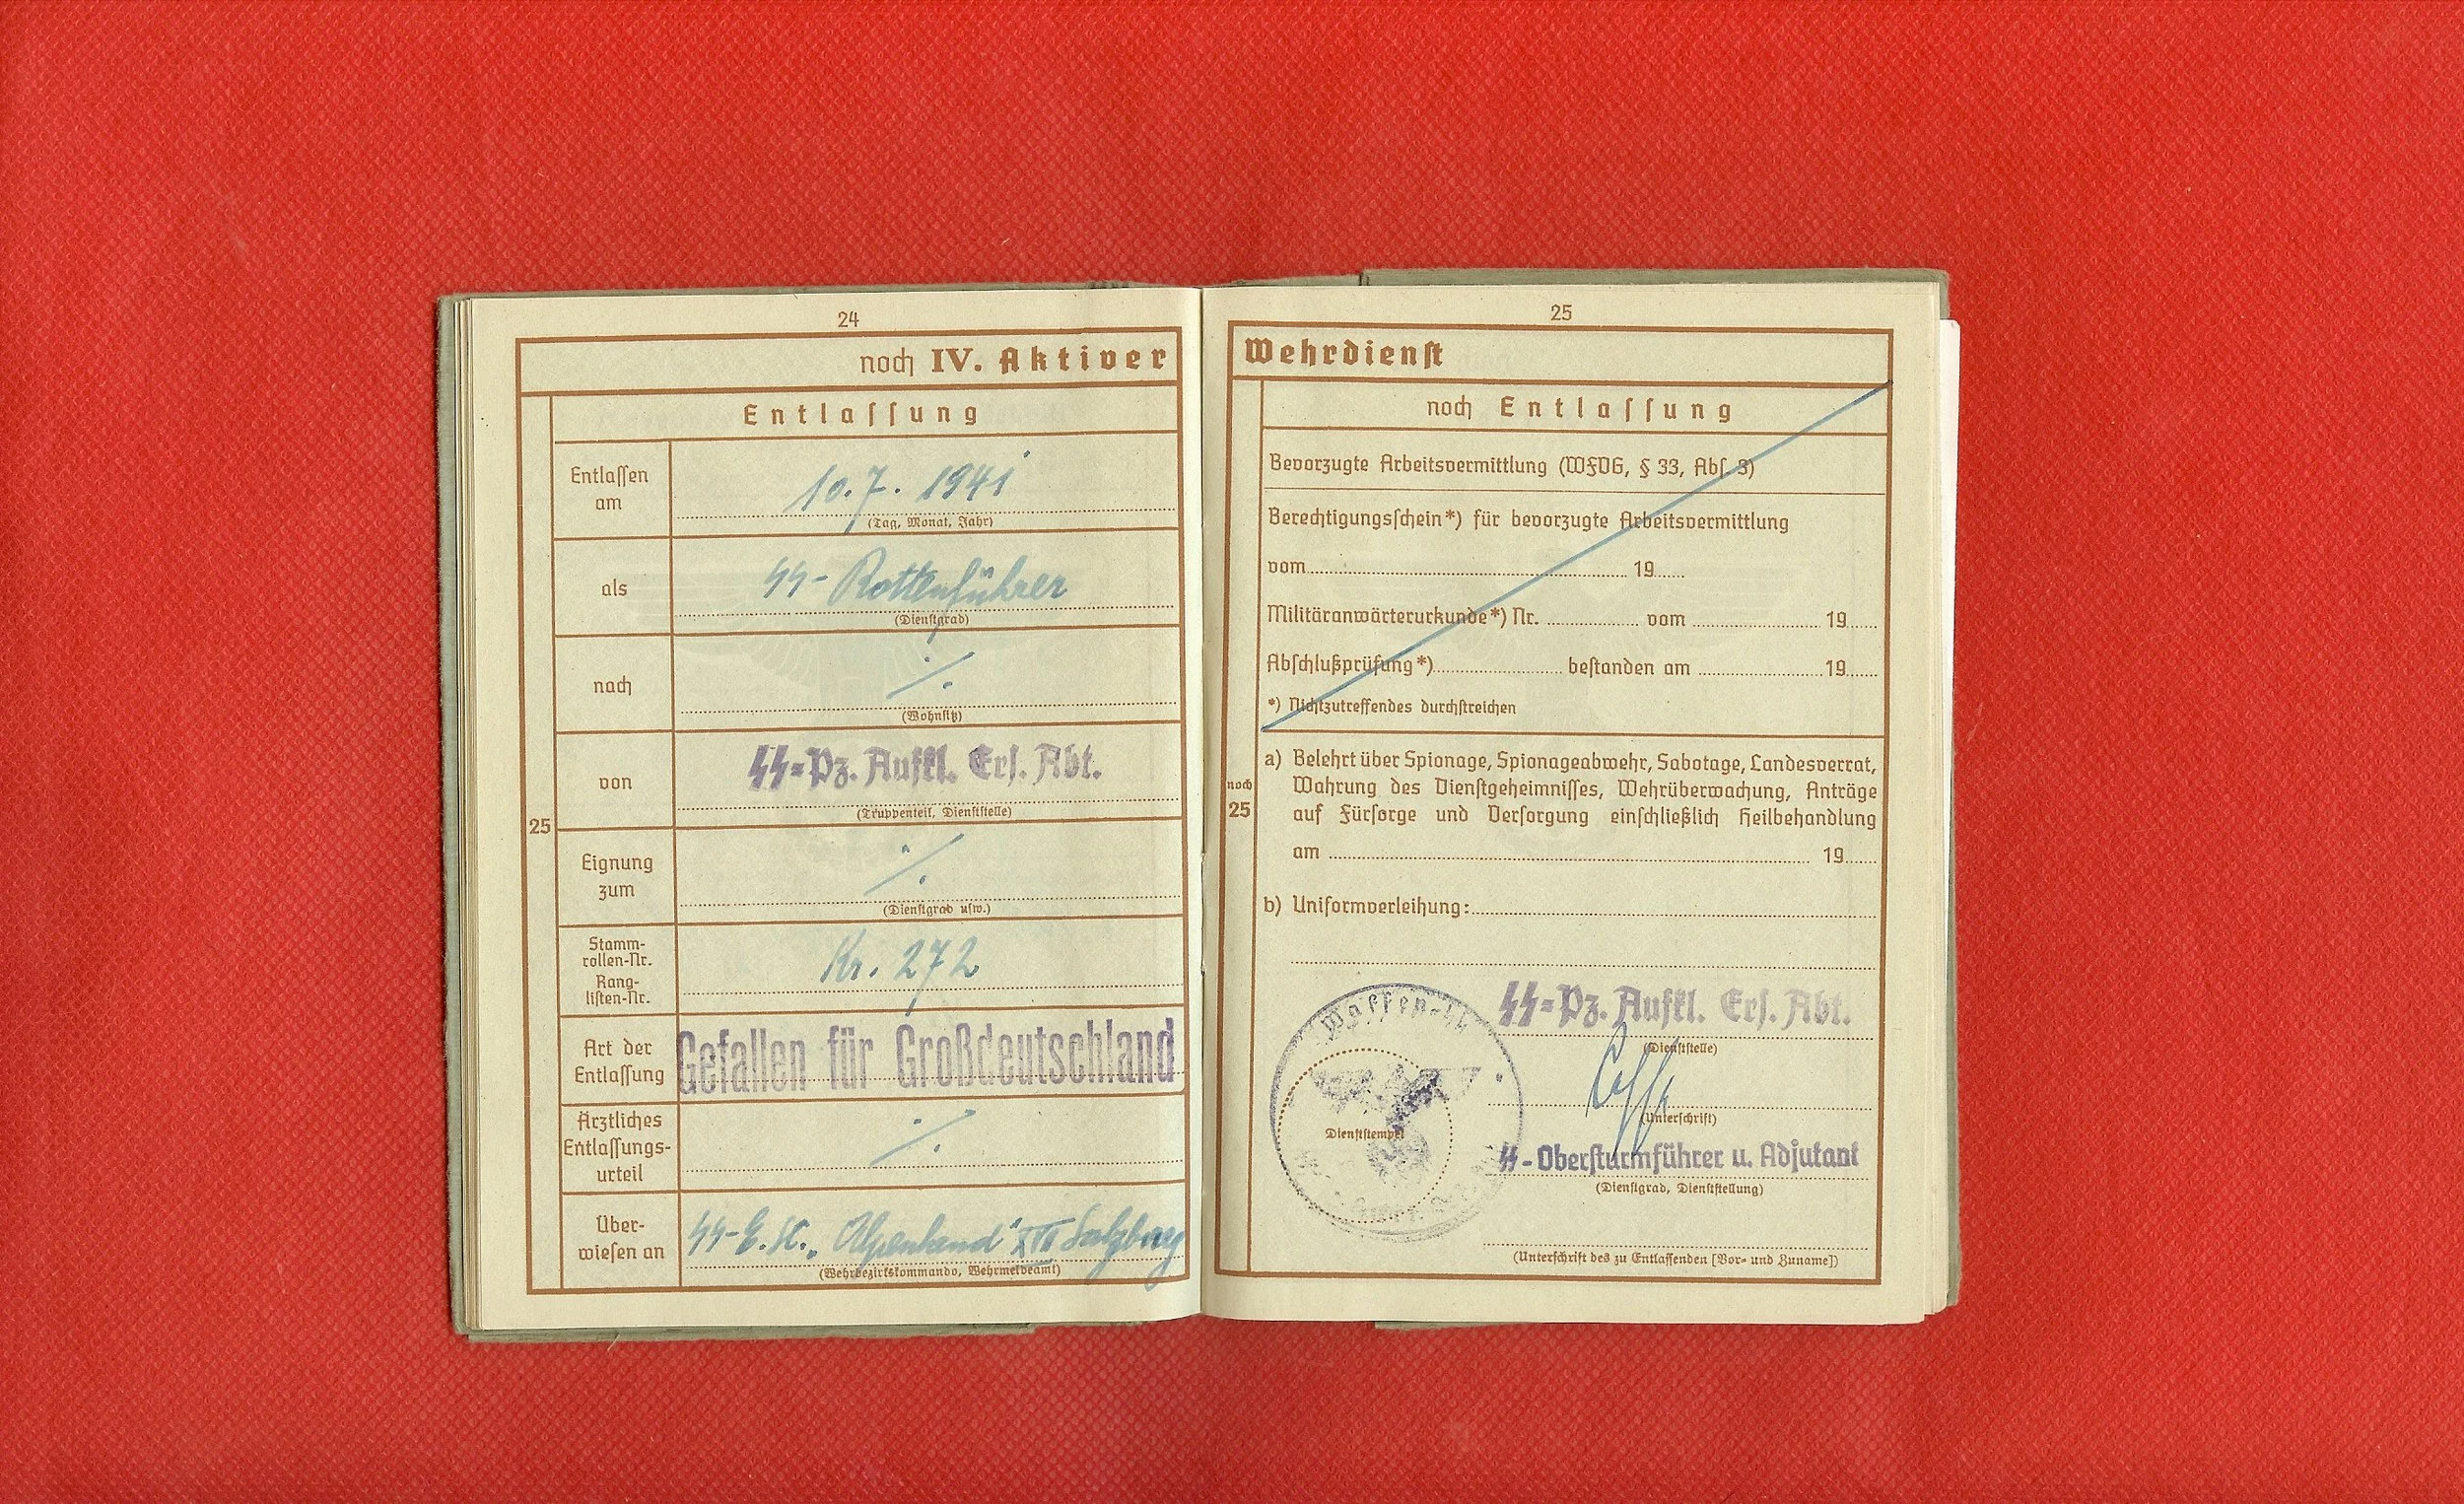 24
noch IV. Aktiver
Entlassung
Entlassen
am
10.7. 1941
(Tag, Monat, Jahr)
als
SS-Rottenführer
(Dienstgrad)
nach
./.
(Wohnsitz)
von
SS=Pz. Aufkl. Ers. Abt.
(Truppenteil, Dienststelle)
25
Eignung
zum
./.
(Dienstgrad usw.)
Stamm-
rollen-Nr.
Rang-
listen-Nr.
Kr. 272
Art der
Entlassung
Gefallen für Großdeutschland
Ärztliches
Entlassungs-
urteil
./.
Über-
wiesen an
SS-E.St. „Alpenland" XVIII Salzburg
(Wehrbezirkskommando, Wehrmeldeamt)
25
Wehrdienst
noch Entlassung
Bevorzugte Arbeitsvermittlung (WFVG, § 33, Abs. 3)
Berechtigungsschein*) für bevorzugte Arbeitsvermittlung
vom 19
Militäranwärterurkunde*) Nr. vom 19
Abschlußprüfung*) bestanden am 19
*) Nichtzutreffendes durchstreichen
noch
25
a) Belehrt über Spionage, Spionageabwehr, Sabotage, Landesverrat,
Wahrung des Dienstgeheimnisses, Wehrüberwachung, Anträge
auf Fürsorge und Versorgung einschließlich Heilbehandlung
am 19
b) Uniformverleihung:
Waffen-SS
SS=Pz. Aufkl. Ers. Abt.
(Dienststelle)
(Unterschrift)
Dienststempel
SS-Obersturmführer u. Adjutant
(Dienstgrad, Dienststellung)
(Unterschrift des zu Entlassenden [Vor- und Zuname])